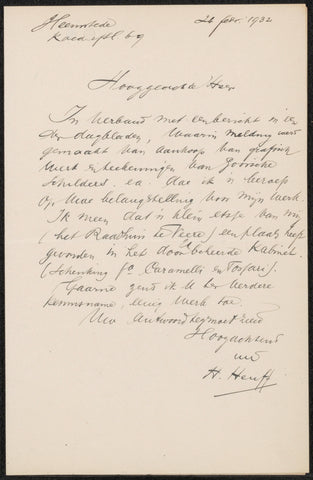 Heemstede 24 febr. 1932
69
Hooggeachte Heer
In verband met een bericht in een
der dagbladen, waarin melding werd
gemaakt van aankoop van grafisch
werk en teekeningen van Gooische
schilders, e.a. doe ik 'n beroep
op Uwe belangstelling voor mijn werk.
Ik meen dat 'n klein etsje van mij
(het Raadhuis te Veere) een plaats heeft
gevonden in het door beheerde Kabinet.
(Schenking Caramelli en Tessaro).
Gaarne zend ik U ter verdere
kennisname, eenig werk toe.
Uw antwoord tegemoet ziend
Hoogachtend
H. Heuff